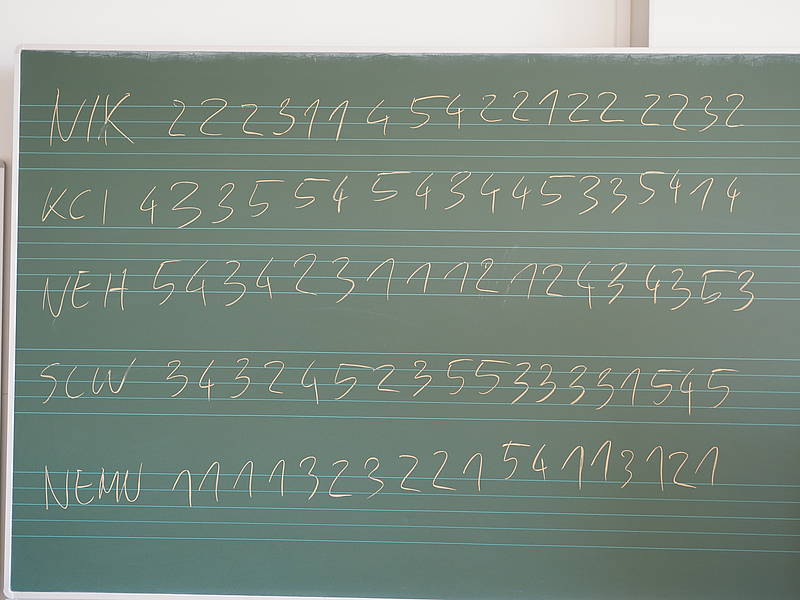 NIK 2 2 2 3 1 1 4 5 4 2 2 1 2 2 2 2 3 2
KCI 4 3 3 5 5 4 5 4 3 4 4 5 3 3 5 4 1 4
NEH 5 4 3 4 2 3 1 1 1 2 1 2 4 3 4 3 5 3
SCW 3 4 3 2 4 5 2 3 5 5 3 3 3 3 1 5 4 5
NEMN 1 1 1 1 3 2 3 2 2 1 5 4 1 1 3 1 2 1